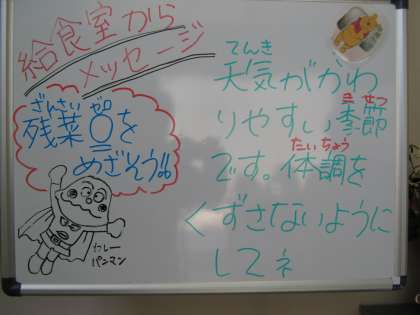 給食室から
メッセージ
ざんさい ゼロ
残菜0を
めざそう!!
カレー
パンマン
てんき
天気がかわ
き せつ
りやすい季節
たいちょう
です。体調を
くずさないように
してネ